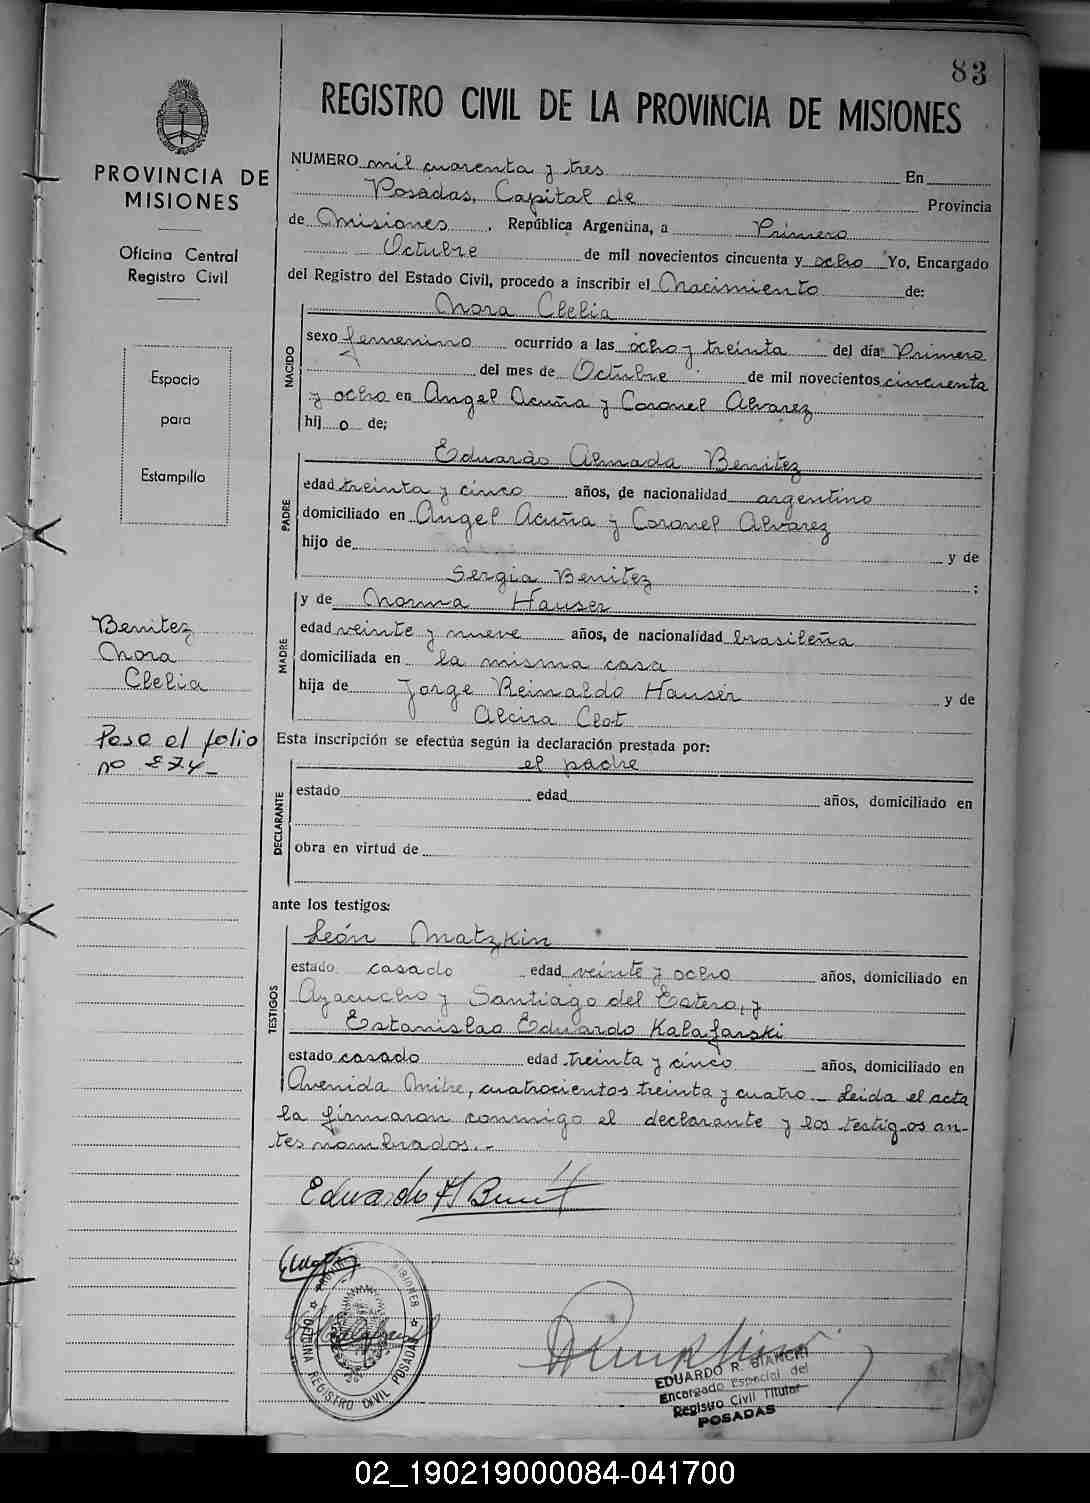 83
REGISTRO CIVIL DE LA PROVINCIA DE MISIONES
PROVINCIA DE
MISIONES
Oficina Central
Registro Civil
Espacio
para
Estampilla
NUMERO mil cuarenta y tres En
Posadas, Capital de Provincia
de Misiones, República Argentina, a Primero
Octubre de mil novecientos cincuenta y ocho Yo, Encargado
del Registro del Estado Civil, procedo a inscribir el Nacimiento de:
NACIDO
Nora Clelia
sexo femenino ocurrido a las ocho y treinta del día Primero
del mes de Octubre de mil novecientos cincuenta
y ocho en Angel Acuña y Coronel Alvarez
hij o de;
PADRE
Eduardo Almada Benitez
edad treinta y cinco años, de nacionalidad argentino
domiciliado en Angel Acuña y Coronel Alvarez
hijo de y de
Sergia Benitez ;
MADRE
y de Norma Hauser
edad veinte y nueve años, de nacionalidad brasileña
domiciliada en la misma casa
hija de Jorge Reinaldo Hauser y de
Alcira Clot
Benitez
Nora
Clelia
Pase al folio
no 274-
Esta inscripción se efectúa según la declaración prestada por:
DECLARANTE
el padre
estado edad años, domiciliado en
obra en virtud de
ante los testigos:
TESTIGOS
León Matzkin
estado casado edad veinte y ocho años, domiciliado en
Ayacucho y Santiago del Estero, y
Estanislao Eduardo Kalafarski
estado casado edad treinta y cinco años, domiciliado en
Avenida Mitre, cuatrocientos treinta y cuatro.- Leida el acta
la firmaron conmigo el declarante y los testigos an-
tes nombrados.-
Eduardo A Benit
PROVINCIA MISIONES
OFICINA REGISTRO CIVIL POSADAS
EDUARDO R. BIANCHI
Encargado Especial del
Registro Civil Titular
POSADAS
02_190219000084-041700